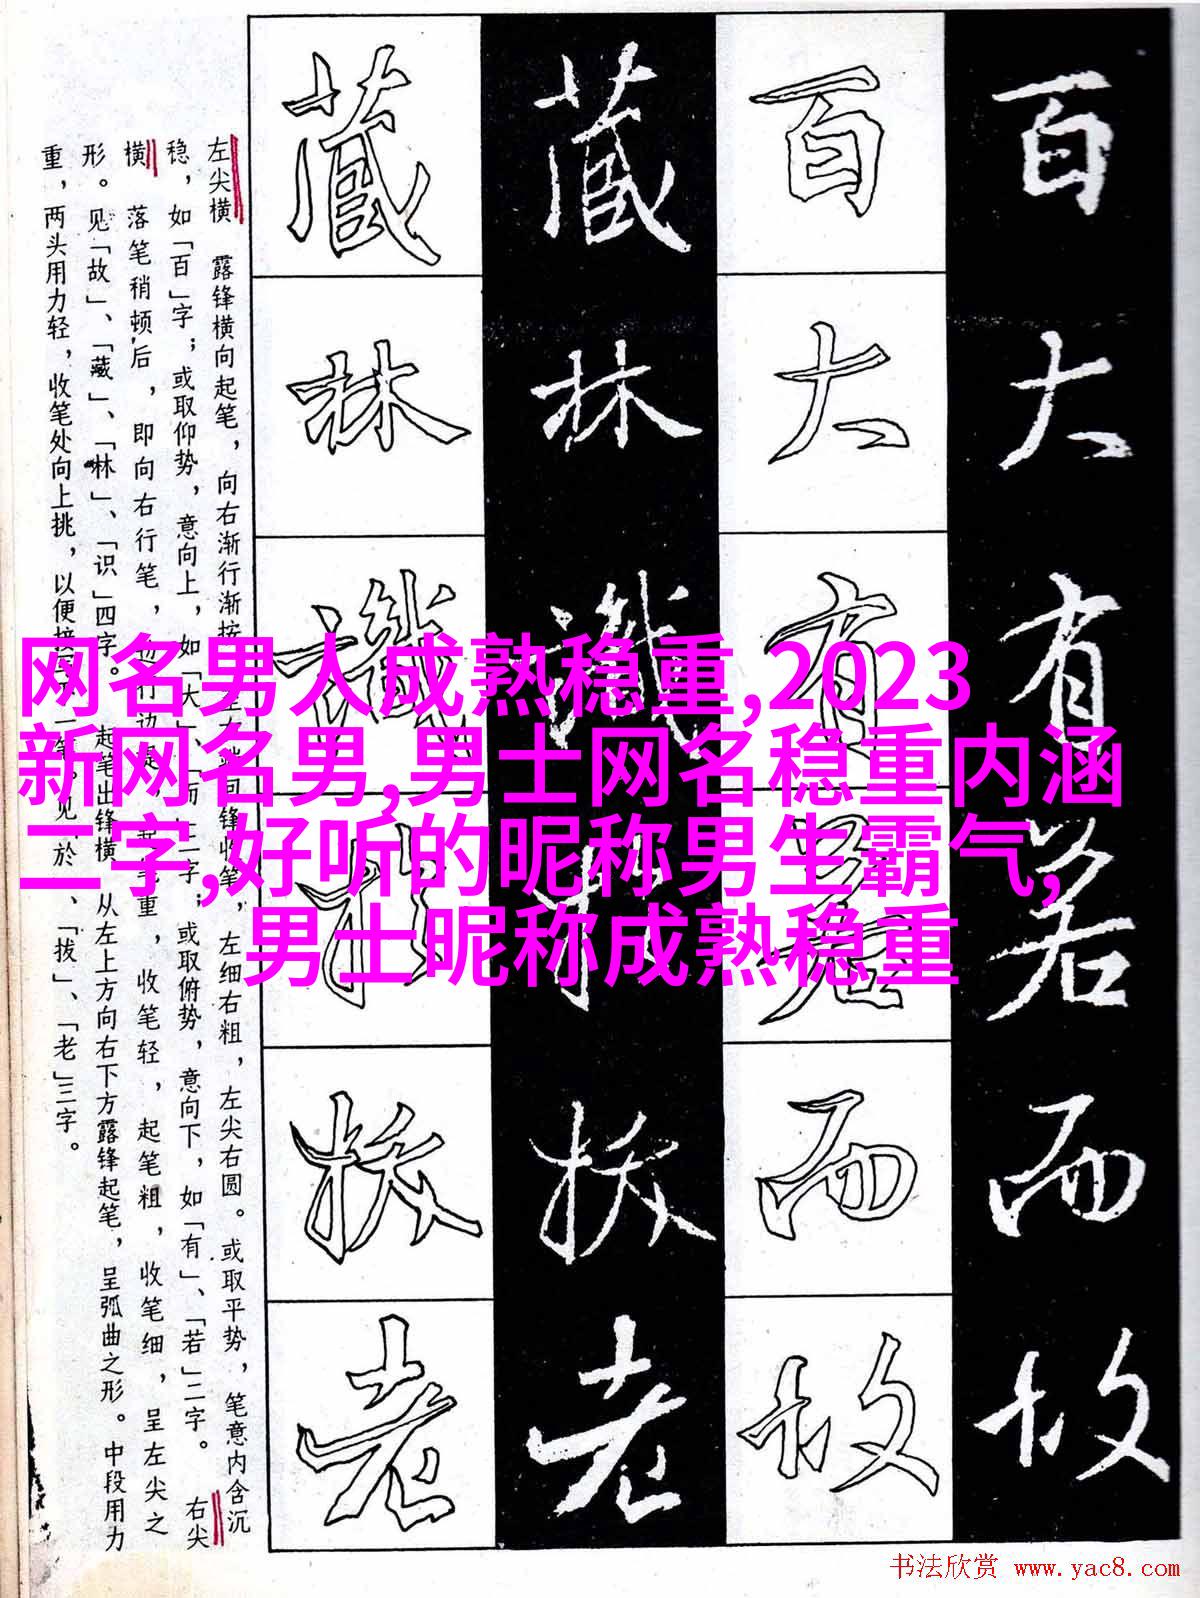 网名男人成熟稳重,2023
新网名男,男士网名稳重内涵
二字,好听的昵称男生霸气,
男士昵称成熟稳重
百
大
有
若
而
故
百
大
有
若
而
故
藏
林
識
於
拔
老
藏
林
識
於
拔
老
左尖横 露锋横向起笔，向右渐行渐按，至右端回锋收笔，左细右粗，左尖右圆。或取平势，笔意内含沉
稳，如「百」字；或取仰势，意向上，如「大」、「而」二字；或取俯势，意向下，如「有」、「若」二字。 右尖
横 落笔稍顿后，即向右行笔，边行边提，起笔重，收笔轻，起笔粗，收笔细，呈左尖之
形。见「故」、「藏」、「林」、「识」四字。 起笔出锋横 从左上方向右下方露锋起笔，呈弧曲之形。中段用力
重，两头用力轻，收笔处向上挑，以便接写下一笔。见「於」、「拔」、「老」三字。
书法欣赏 www.yac8.com